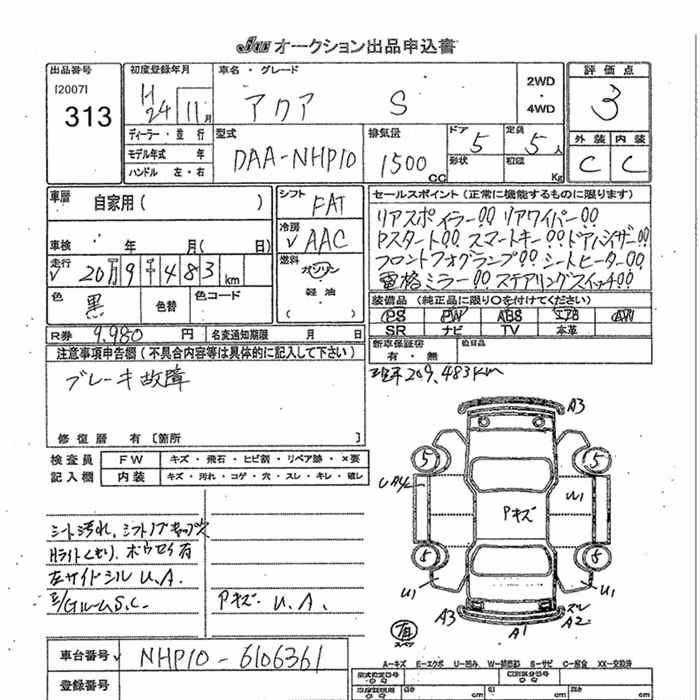 JU オークション出品申込書
出品番号
[2007]
313
初度登録年月
H 24 11 月
車名・グレード
アクア S
2WD
・
4WD
評価点
3
ディーラー・並行
モデル年式 年
ハンドル 左・右
型式
DAA-NHP10
排気量
1500 CC
ドア 5
形状
定員 5 人
積載 Kg
外装 内装
C C
車歴 自家用( )
シフト FAT
車検 年 月( 日)
冷房 ✓ AAC
走行 ✓ 20万9千483 km
燃料 ガソリン
軽油
色 黒 色替 色コード
セールスポイント (正常に機能するものに限ります)
リアスポイラー!! リアワイパー!!
Pスタート!! スマートキー!! ドアバイザー!!
フロントフォグランプ!! シートヒーター!!
電格ミラー!! ステアリングスイッチ!!
装備品 (純正品に限り○を付けてください)
PS PW ABS エアB AW
SR ナビ TV 本革
R券 9.980 円 名変通知期限 月 日
新車保証書
有・無
注意事項申告欄 (不具合内容等は具体的に記入して下さい)
ブレーキ故障
209,483km
修復歴 有 [箇所 ]
検査員 FW キズ・飛石・ヒビ割・リペア跡・×要
記入欄 内装 キズ・汚れ・コゲ・穴・スレ・キレ・破レ
A3
5 5
U1
Pキズ
5 5
U1 U1
A3 A1 A2
スペア
シート汚れ、シフトノブ
Hライトくもり、ボウセイ有
左サイドシル U.A.
E/Gルーム S.C.
Pキズ U.A.
A-キズ E-エクボ U-凹み S-サビ C-腐食 XX-交換済
車台番号 ✓ NHP10-6106361
登録番号